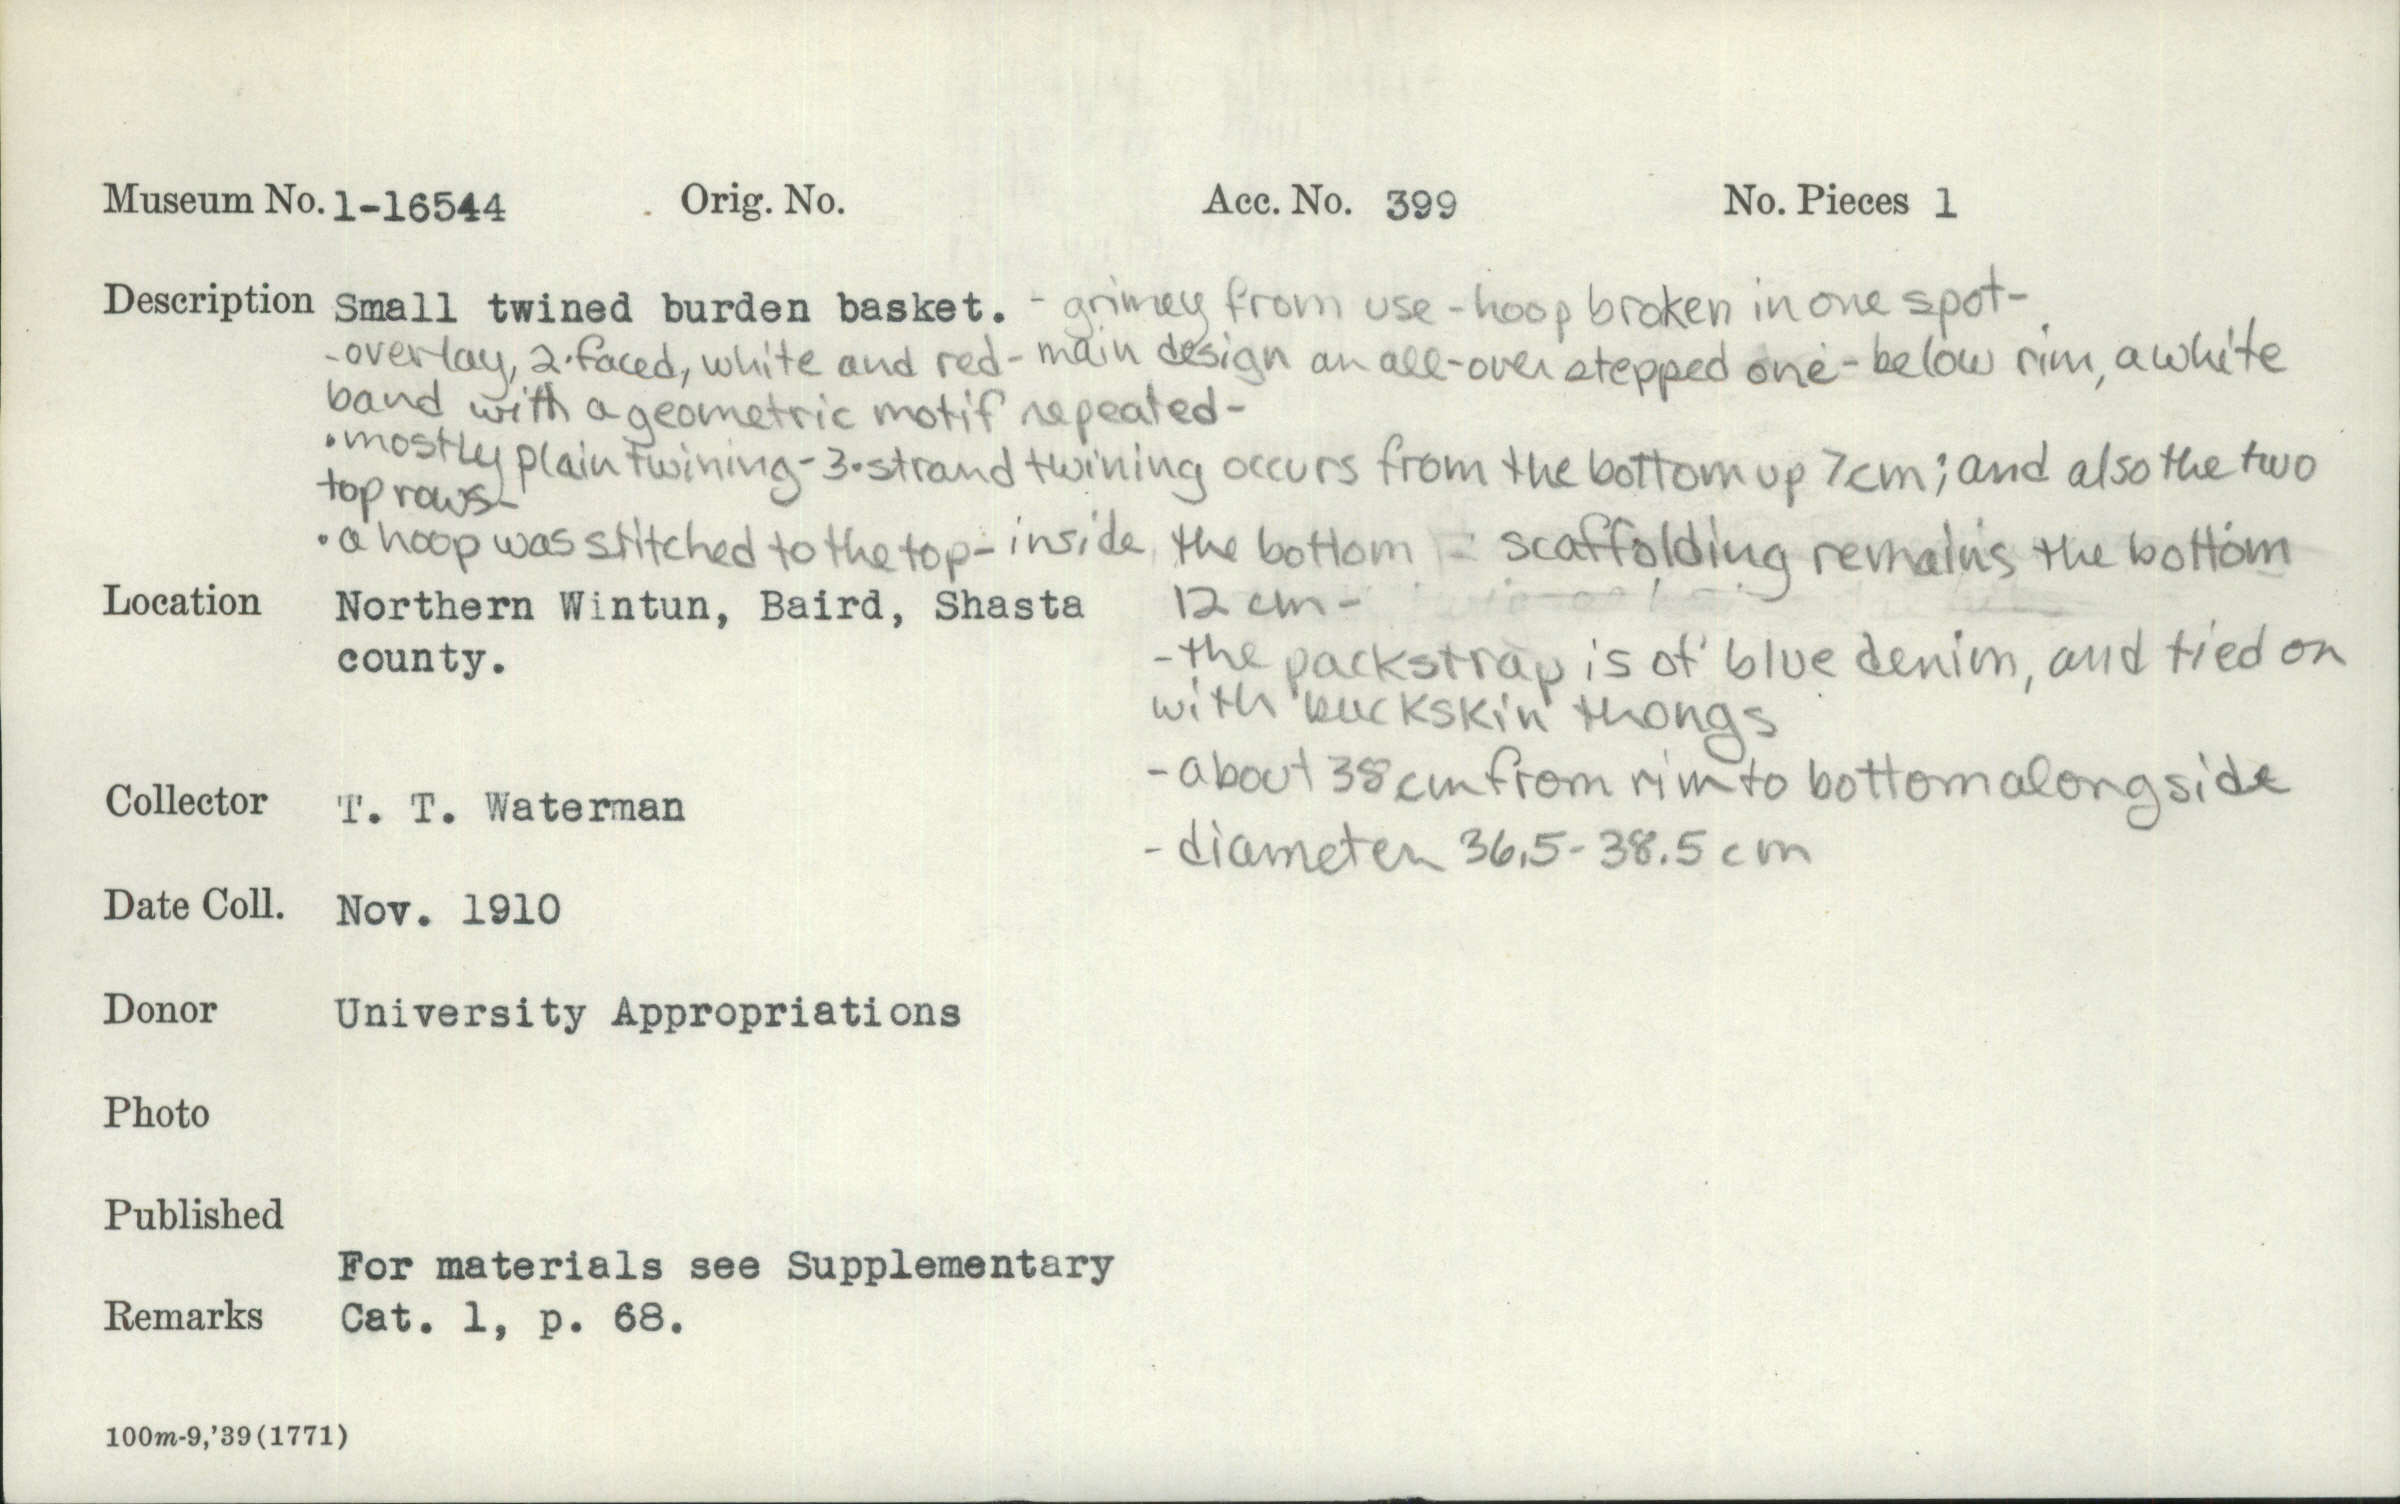 Museum No. 1-16544 Orig. No. Acc. No. 399 No. Pieces 1
Description Small twined burden basket. - grimey from use - hoop broken in one spot -
- overlay, 2-faced, white and red - main design an all-over stepped one - below rim, a white
band with a geometric motif repeated -
• mostly plain twining - 3-strand twining occurs from the bottom up 7cm; and also the two
top rows -
• a hoop was stitched to the top - inside the bottom - scaffolding remains the bottom
12 cm -
Location Northern Wintun, Baird, Shasta
county.
- the packstrap is of blue denim, and tied on
with buckskin thongs
- about 38 cm from rim to bottom along side
- diameter 36.5 - 38.5 cm
Collector T. T. Waterman
Date Coll. Nov. 1910
Donor University Appropriations
Photo
Published
For materials see Supplementary
Remarks Cat. 1, p. 68.
100m-9,'39(1771)